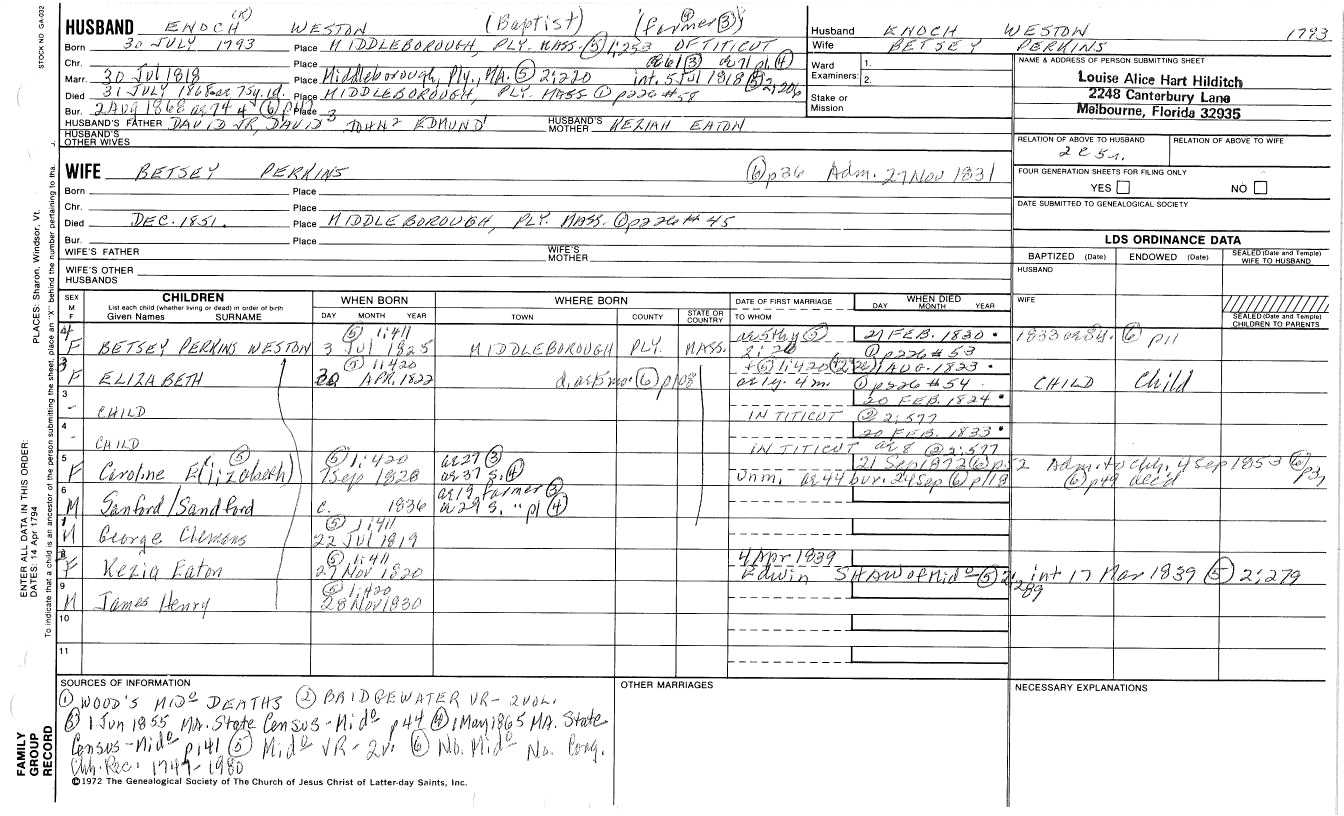 STOCK NO GA-032
HUSBAND ENOCH (K) WESTON (Baptist) (farmer ④③)
Born 30 JULY 1793 Place MIDDLEBOROUGH, PLY. MASS. ⑤ 1:253 OF TITICUT
Chr. Place ae61 ③ ae71 pl. ④
Marr. 30 Jul 1818 Place Middleborough, Ply, MA. ⑤ 2:220 int. 5 Jul 1818 ⑤ 2:206
Died 31 JULY 1868 ae 75y. 1d. Place MIDDLEBOROUGH, PLY MASS ① p226 #58
Bur. 2 Aug 1868 ae 74 ⑥ p42 Place
HUSBAND'S FATHER DAVID JR, DAVID 3 JOHN 2 EDMUND 1 HUSBAND'S MOTHER KEZIAH EATON
HUSBAND'S OTHER WIVES
Husband ENOCH WESTON 1793
Wife BETSEY PERKINS
Ward Examiners: 1. 2.
Stake or Mission
NAME & ADDRESS OF PERSON SUBMITTING SHEET
Louise Alice Hart Hilditch
2248 Canterbury Lane
Melbourne, Florida 32935
RELATION OF ABOVE TO HUSBAND RELATION OF ABOVE TO WIFE
2c5r.
FOUR GENERATION SHEETS FOR FILING ONLY
YES NO
DATE SUBMITTED TO GENEALOGICAL SOCIETY
WIFE BETSEY PERKINS ⑥ p36 Adm. 27 Nov 1831
Born Place
Chr. Place
Died DEC. 1851. Place MIDDLEBOROUGH, PLY. MASS. ① p226 #45
Bur. Place
WIFE'S FATHER WIFE'S MOTHER
WIFE'S OTHER HUSBANDS
LDS ORDINANCE DATA
BAPTIZED (Date) ENDOWED (Date) SEALED (Date and Temple) WIFE TO HUSBAND
HUSBAND
WIFE
SEALED (Date and Temple) CHILDREN TO PARENTS
SEX M F CHILDREN List each child (whether living or dead) in order of birth Given Names SURNAME
WHEN BORN DAY MONTH YEAR
WHERE BORN TOWN COUNTY STATE OR COUNTRY
DATE OF FIRST MARRIAGE TO WHOM
WHEN DIED DAY MONTH YEAR
4 ⑤ 1:411 ⑤ 21 FEB. 1830 • 1833 ⑥ p11
F BETSEY PERKINS WESTON 3 Jul 1825 MIDDLEBOROUGH PLY. MASS. ① p226 #53
3 ⑤ 1:420 1:420 1 AUG. 1823 •
F ELIZABETH APR. 1822 d. ae 15 mo. ⑥ p108 ae 1y. 4m. ① p226 #54 CHILD Child
3 20 FEB. 1824 •
- CHILD IN TITICUT ② 2:577
4 20 FEB. 1833 •
- CHILD IN TITICUT ae 8 ② 2:577
5 ⑤ ⑤ 1:420 ae27 ③ 21 Sep 1872 ⑥ p.52 Adm. to Chh. 4 Sep 1853 ⑥ p37
F Caroline E(lizabeth) 7 Sep 1828 ae37 S. ④ Unm. ae 44 bur. 24 Sep ⑥ p118 ⑥ p49 dec'd
6 ae19, farmer ③
M Sanford/Sandford c. 1836 ae29 S. " pl ④
1 ⑤ 1:411
M George Clemons 22 Jul 1819
2 ⑤ 1:411 4 Apr 1839
F Kezia Eaton 27 Nov 1820 Edwin SHAW of Mido ⑤ 2:289 int 17 Mar 1839 ⑤ 2:279
9 ⑤ 1:420
M James Henry 28 Nov 1830
10
11
SOURCES OF INFORMATION
① WOOD'S MIDo DEATHS ② BRIDGEWATER VR - 2 VOL.
③ 1 Jun 1855 MA. State Census - Mido p44 ④ 1 May 1865 MA. State
Census - Mido p141 ⑤ Mido VR - 2v. ⑥ No. Mido No. Cong.
Chh. Rec. 1747-1980
©1972 The Genealogical Society of The Church of Jesus Christ of Latter-day Saints, Inc.
OTHER MARRIAGES
NECESSARY EXPLANATIONS
PLACES: Sharon, Windsor, Vt.
ENTER ALL DATA IN THIS ORDER:
DATES: 14 Apr 1794
To indicate that a child is an ancestor of the person submitting the sheet, place an "X" behind the number pertaining to tha.
FAMILY GROUP RECORD